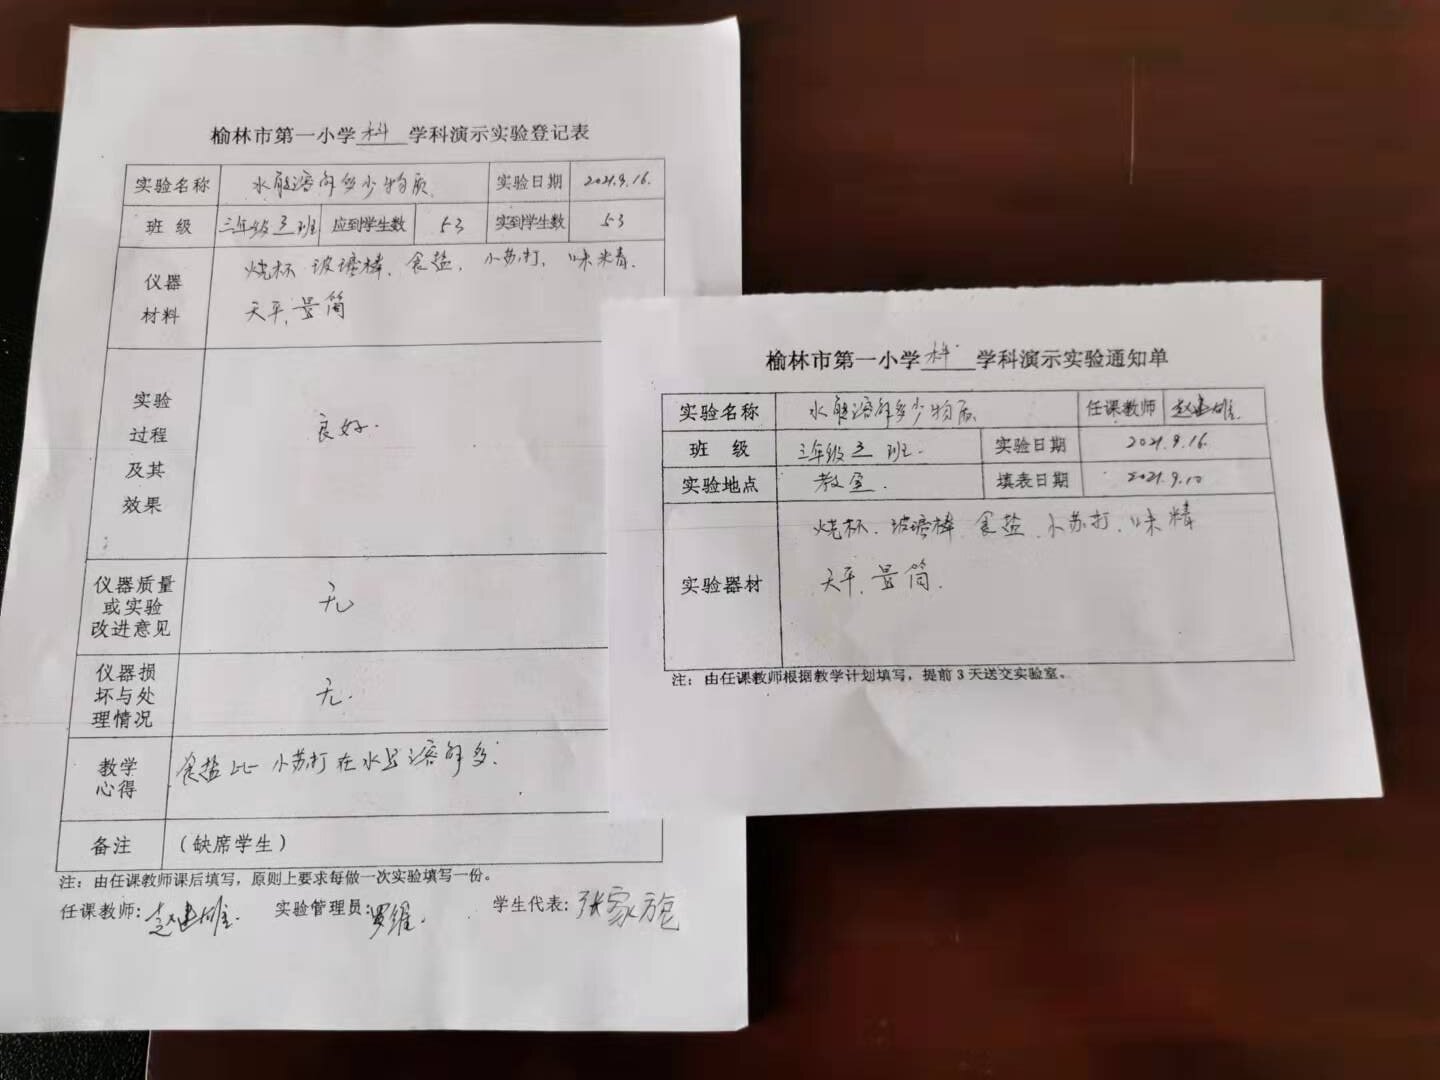 榆林市第一小学 科 学科演示实验登记表
实验名称 水能溶解多少物质 实验日期 2021.9.16.
班 级 三年级三班 应到学生数 53 实到学生数 53
仪器材料 烧杯 玻璃棒、食盐、小苏打、味精、
天平、量筒
实验过程及其效果 良好.
仪器质量或实验改进意见 无
仪器损坏与处理情况 无.
教学心得 食盐比小苏打在水里溶解多.
备注 (缺席学生)
注：由任课教师课后填写，原则上要求每做一次实验填写一份。
任课教师：赵建雄. 实验管理员：罗维. 学生代表：张家旋
榆林市第一小学 科 学科演示实验通知单
实验名称 水能溶解多少物质 任课教师 赵建雄.
班 级 三年级三班. 实验日期 2021.9.16.
实验地点 教室. 填表日期 2021.9.10
实验器材 烧杯、玻璃棒 食盐、小苏打、味精
天平、量筒.
注：由任课教师根据教学计划填写，提前3天送交实验室。